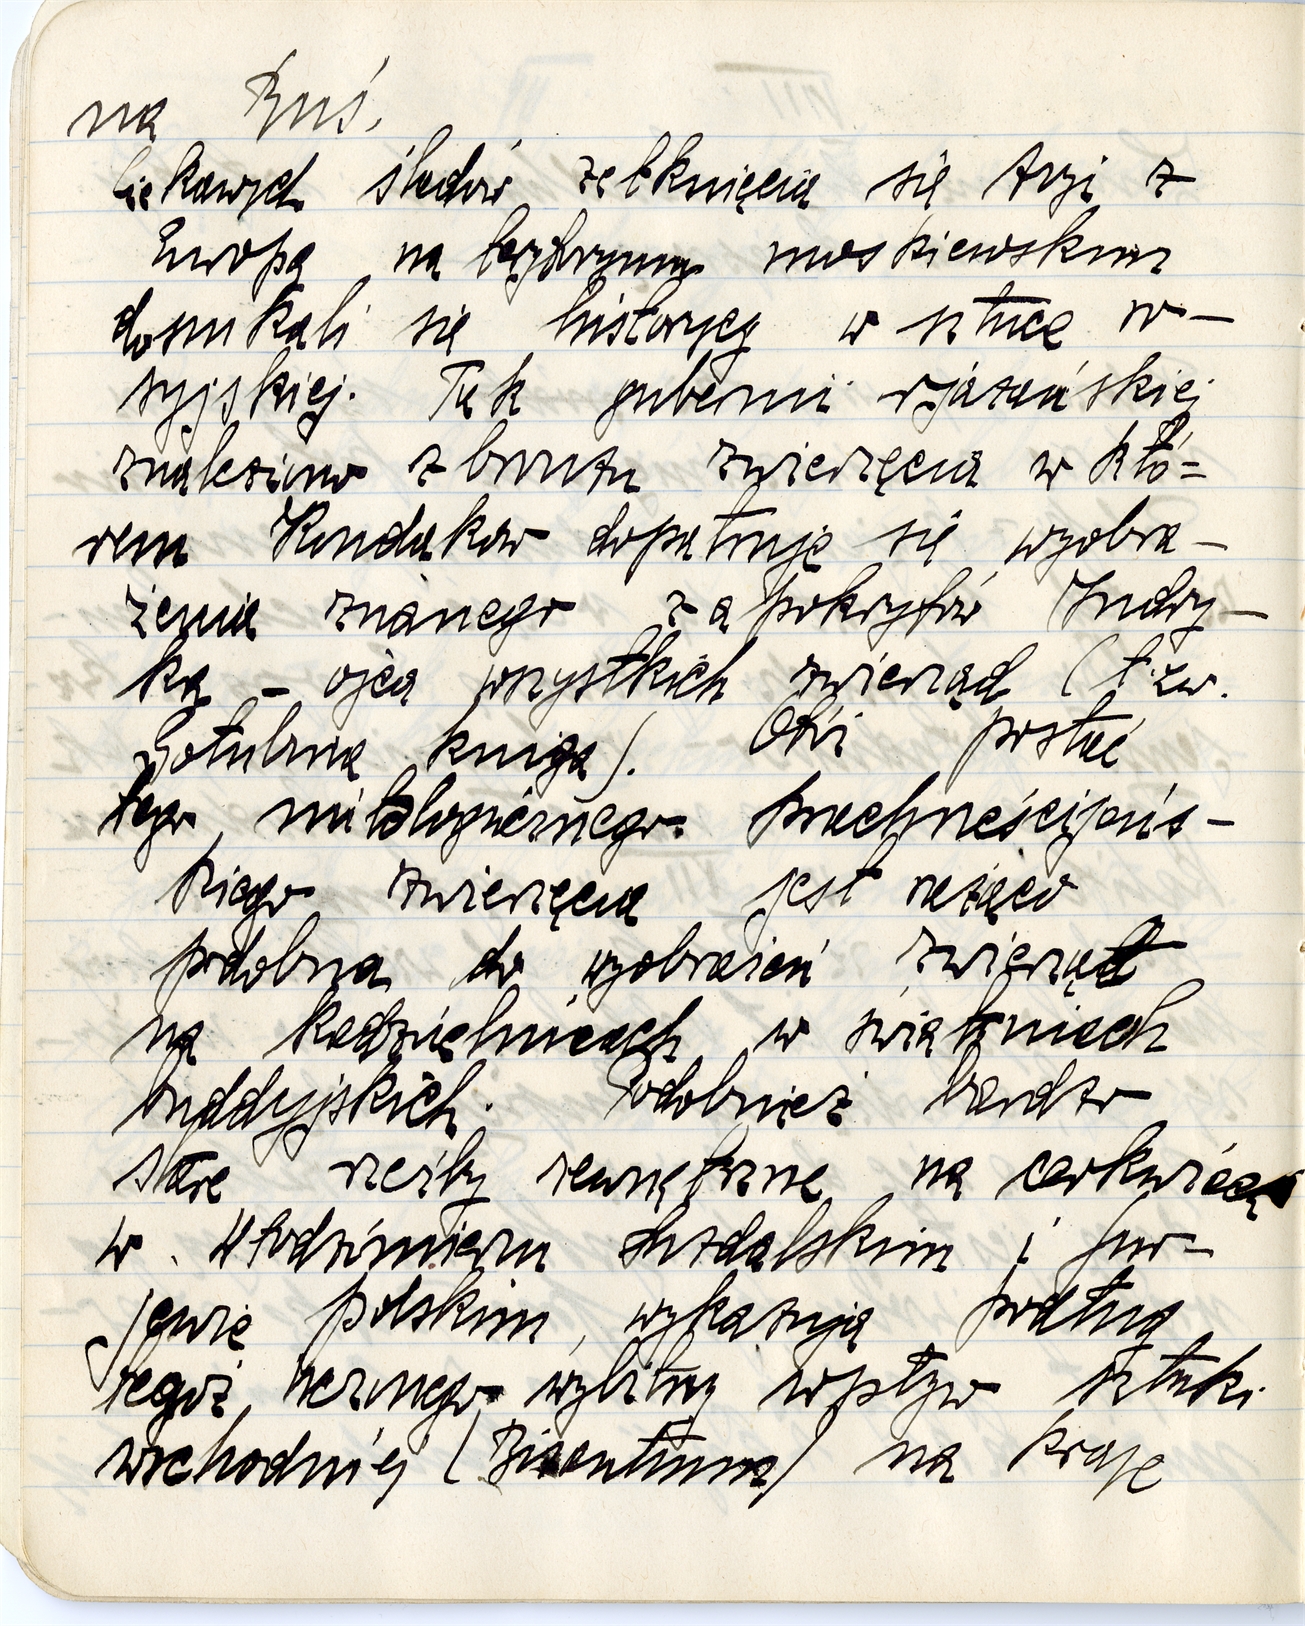 na Ruś.
Ciekawych śladów zetknięcia się Azji z
Europą na terytoryum moskiewskim
doszukali się historycy w sztuce ro-
syjskiej. Tak gubernii rjázańskiej
znaleziono z bronzu zwierzęcia w któ=
rem Kondakow dopatruje się wyobra-
żenia znanego z apokryfów Indry-
ka - ojca wszystkich zwierząd (t.zw.
Gołubina kniga). Otóż postać
tego mitologicznego prachrześcijańs-
kiego zwierzęcia jest rażąco
podobna do wyobrażeń zwierząt
na kadzielnicach w świątyniach
buddyjskich. Podobnież bardzo
stare rzeźby zewnętrzne na cerkwiach
w Włodzimierzu suzdalskim i Jur-
jewie polskim, wykazują podług
tegoż uczonego wybitny wpływ sztuki
wschodniej (Bizantium) na kraje